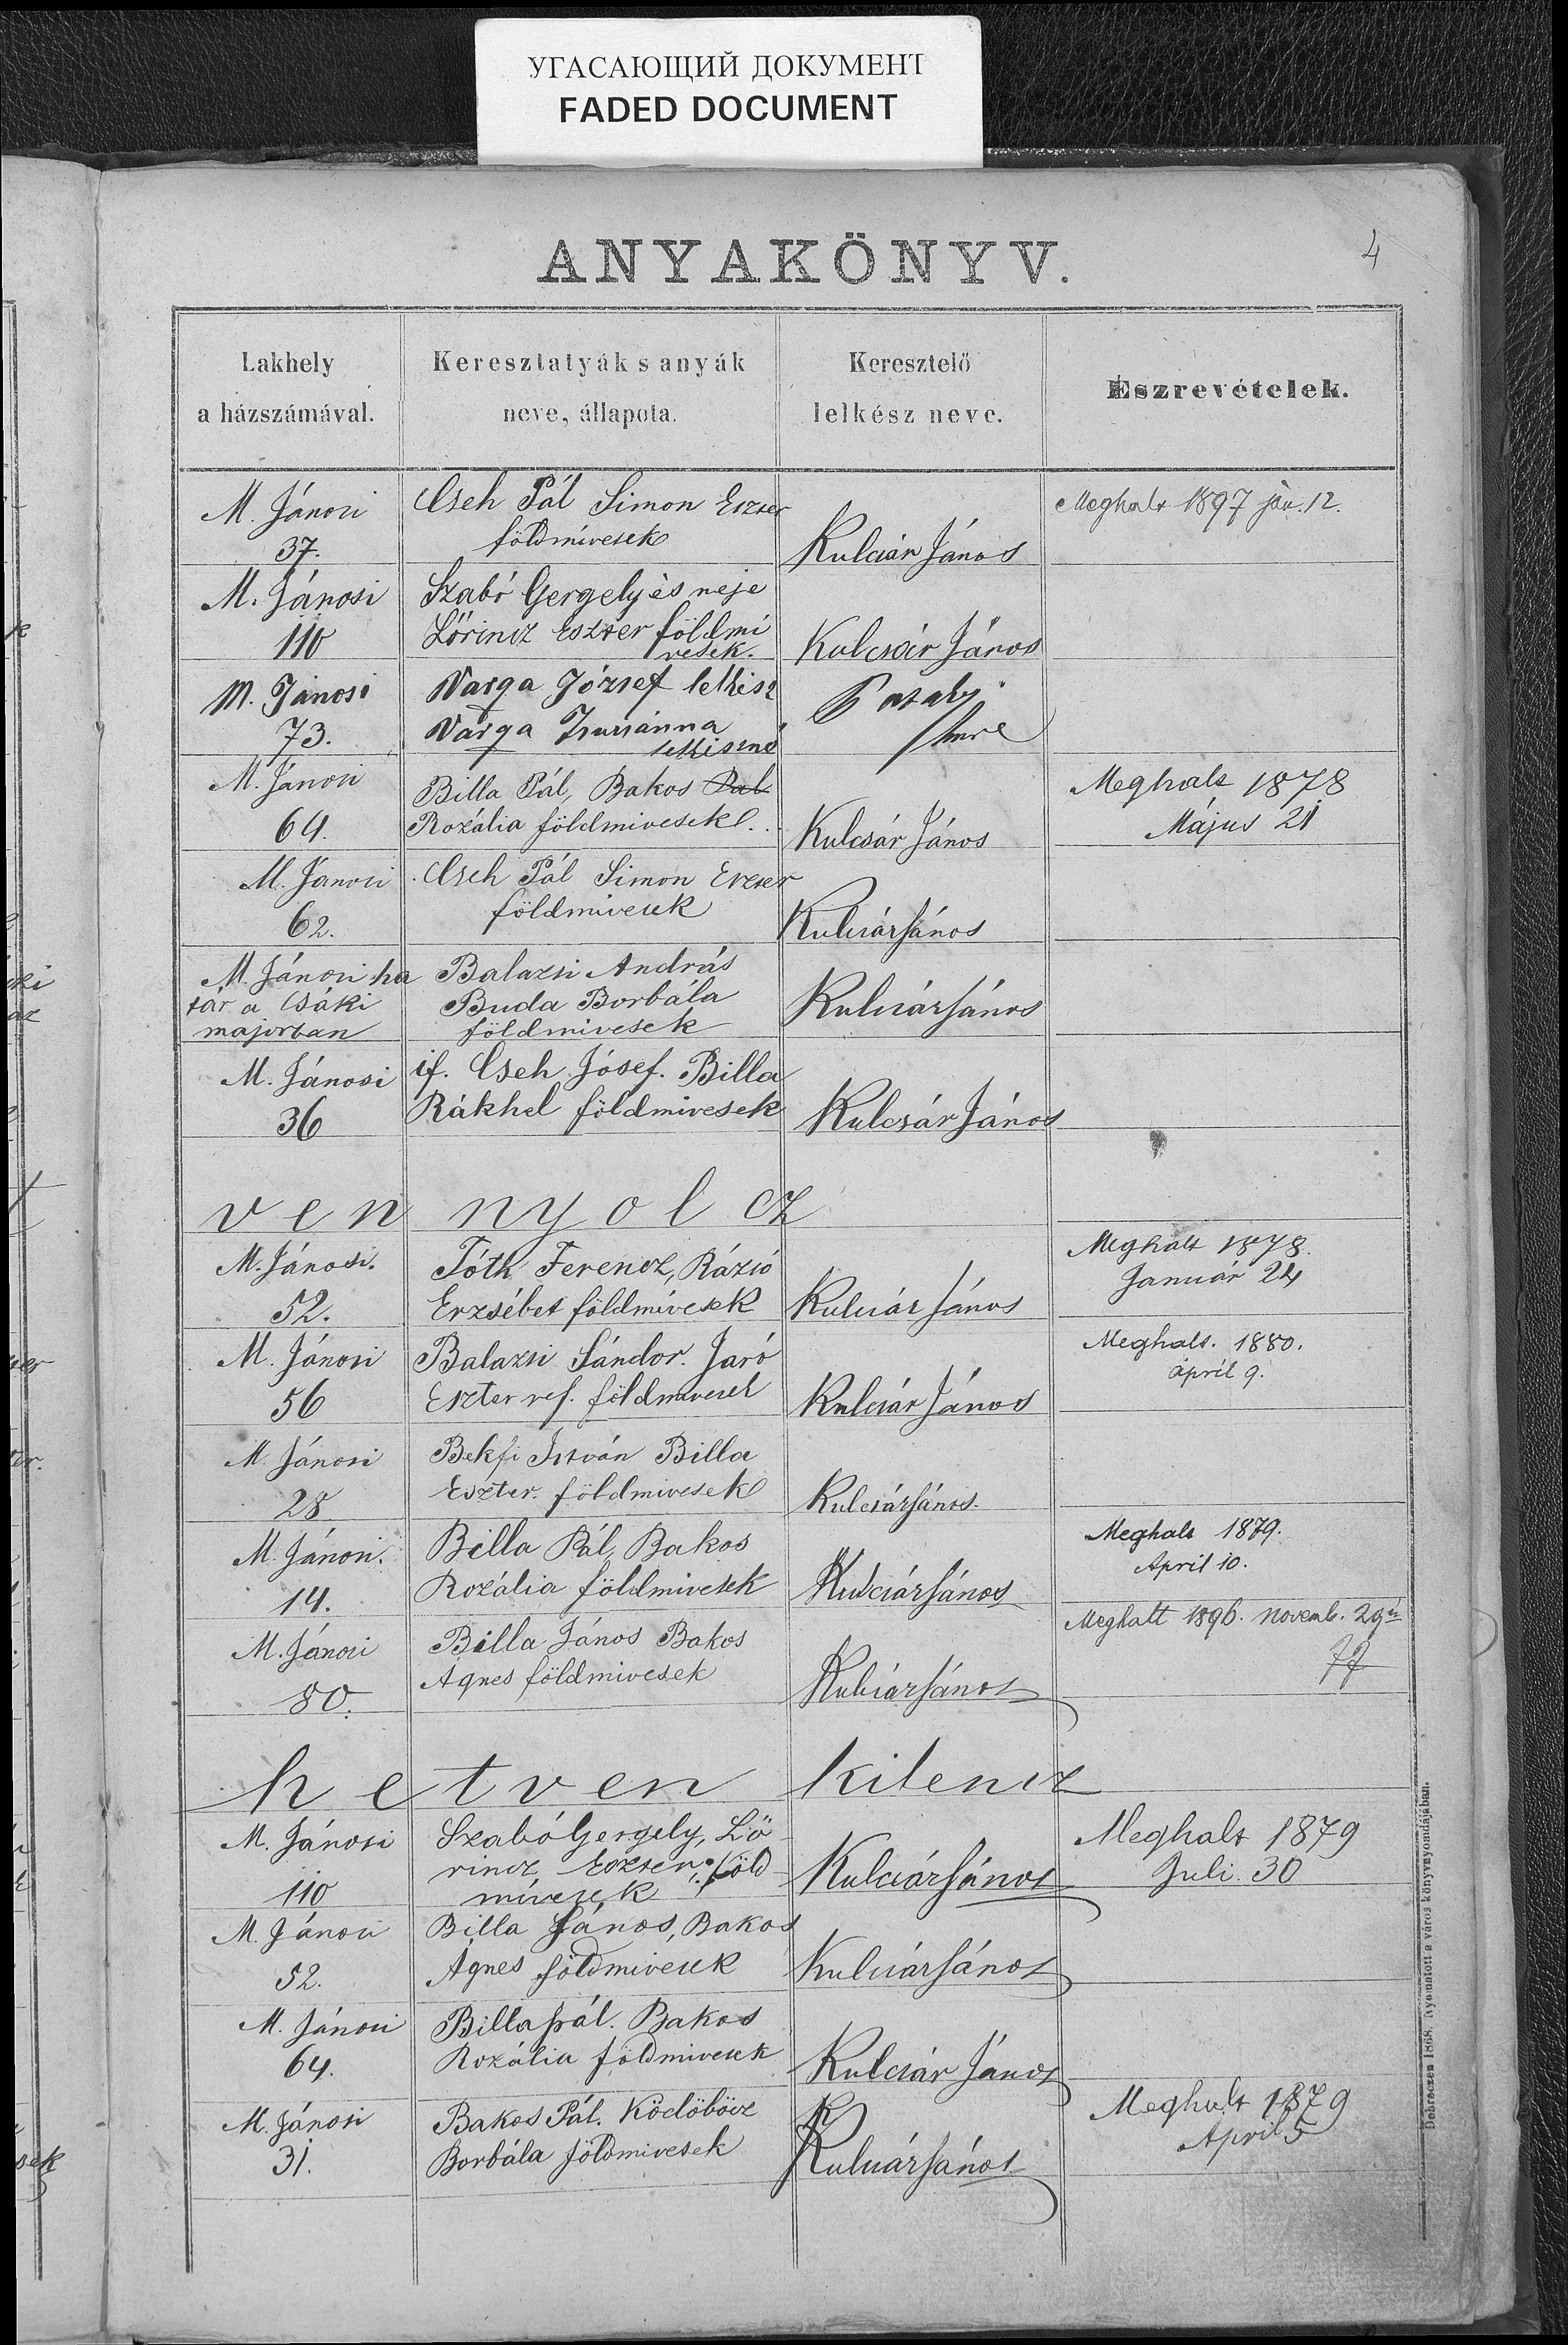 УГАСАЮЩИЙ ДОКУМЕНТ
FADED DOCUMENT
4
ANYAKÖNYV.
Lakhely
a házszámával.
Keresztatyák s anyák
neve, állapota.
Keresztelő
lelkész neve.
Észrevételek.
M. Jánosi
37.
Cseh Pál Simon Eszter
földmívesek
Kulcsár János
Meghalt 1897 jan. 12.
M. Jánosi
110
Szabó Gergely és neje
Lőrincz Eszter földmí
vesek.
Kulcsár János
M. Jánosi
73.
Varga József lelkész
Varga Zsuzsánna
lelkészné
Pataky
Imre
M. Jánosi
64.
Billa Pál, Bakos Pal
Rozália földmivesek.
Kulcsár János
Meghalt 1878
Május 21
M. Jánosi
62.
Cseh Pál Simon Eszter
földmivesek
Kulcsár János
M. Jánosi ha
tár a Csáki
majorban
Balazsi András
Buda Borbála
földmivesek
Kulcsár János
M. Jánosi
36
if. Cseh Jósef. Billa
Rákhel földmivesek
Kulcsár János
ven nyolcz
M. Jánosi.
52.
Tóth Ferencz, Rázsó
Erzsébet földmívesek
Kulcsár János
Meghalt 1878.
Január 24
M. Jánosi
56
Balazsi Sándor. Jaró
Eszter ref. földmivesek
Kulcsár János
Meghalt. 1880.
april 9.
M. Jánosi
28
Bekfi István Billa
Eszter. földmivesek
Kulcsár János.
M. Jánosi.
14.
Billa Pál, Bakos
Rozália földmivesek
Kulcsár János
Meghalt 1879.
April 10.
M. Jánosi
80.
Billa János Bakos
Ágnes földmivesek
Kulcsár János
Meghalt 1896. novemb. 29én
hetven kilencz
M. Jánosi
110
Szabó Gergely, Lő
rincz Eszter, föld
mívesek
Kulcsár János
Meghalt 1879
Juli. 30
M. Jánosi
52.
Billa János, Bakos
Ágnes földmivesek
Kulcsár János
M. Jánosi
64.
Billa pál. Bakos
Rozália földmivesek
Kulcsár János
M. Jánosi
31.
Bakos Pál. Ködöböcz
Borbála földmivesek
Kulcsár János
Meghalt 1879
April 5
Debreczen 1868. Nyomatott a város könyvnyomdájában.